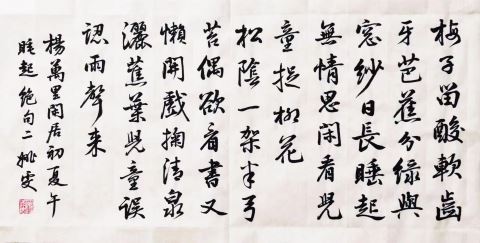 梅子留酸軟齒
牙芭蕉分綠與
窓紗日長睡起
無情思閑看兒
童捉柳花
松陰一架半弓
苔偶欲看書又
懶開戲掬清泉
灑蕉葉兒童誤
認雨聲来
楊萬里閑居初夏午
睡起絕句二